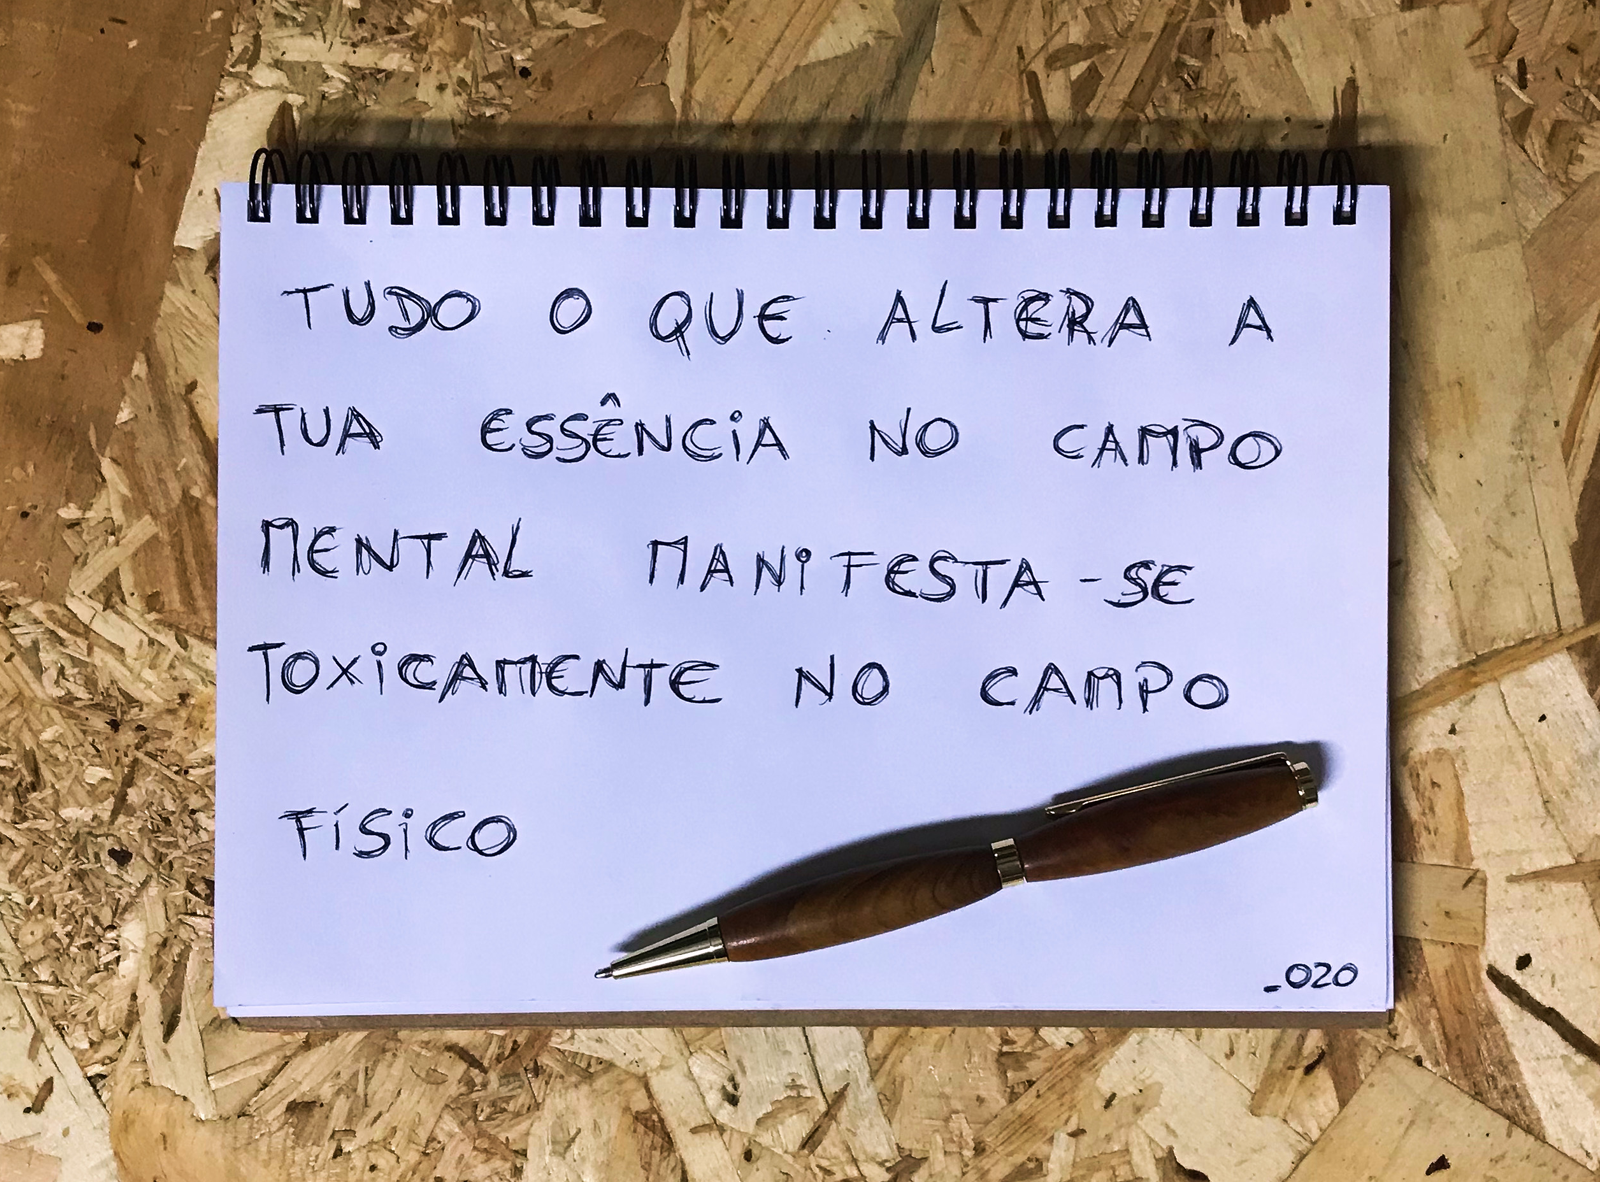 TUDO O QUE ALTERA A
TUA ESSÊNCiA NO CAMPO
MENTAL MANiFESTA-SE
TOXiCAMENTE NO CAMPO
FÍSiCO
_020